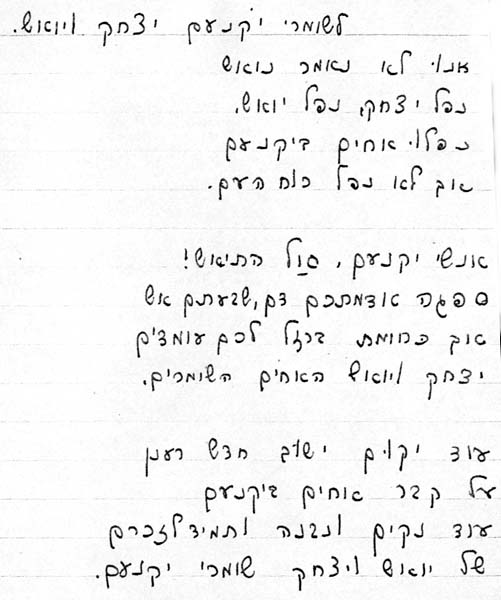 לשומרי יקנעם יצחק ויואש.
אנו לא נאמר נואש
נפל יצחק, נפל יואש,
נפלו אחים ביקנעם
אך לא נפל כוח העם.
אנשי יקנעם, סול התיאש!
ספגה אדמתכם דם, שבעתם אש
אך כחומת ברזל לכם עומדים
יצחק ויואש האחים השומרים.
עוד יקום ישוב חדש רענן
על קבר אחים ביקנעם
עוד נקים ונבנה ותמיד לזכרם
של יואש ויצחק שומרי יקנעם.